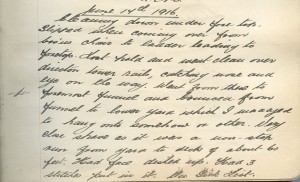 June 14th 1916.
Cleaning down under fore top.
Slipped when coming over from
chair to ladder leading to
foretop. Lost hold and went clean over
lower rails, catching nose and
eye on the way. Went from this to
foremost funnel and bounced from
funnel to lower yard which I managed
to hang onto somehow or other. Very
close shave as it was a non-stop
run from yard to deck of about 60
feet. Had face dialed up. Had 3
stitches put in it. On Sick List.